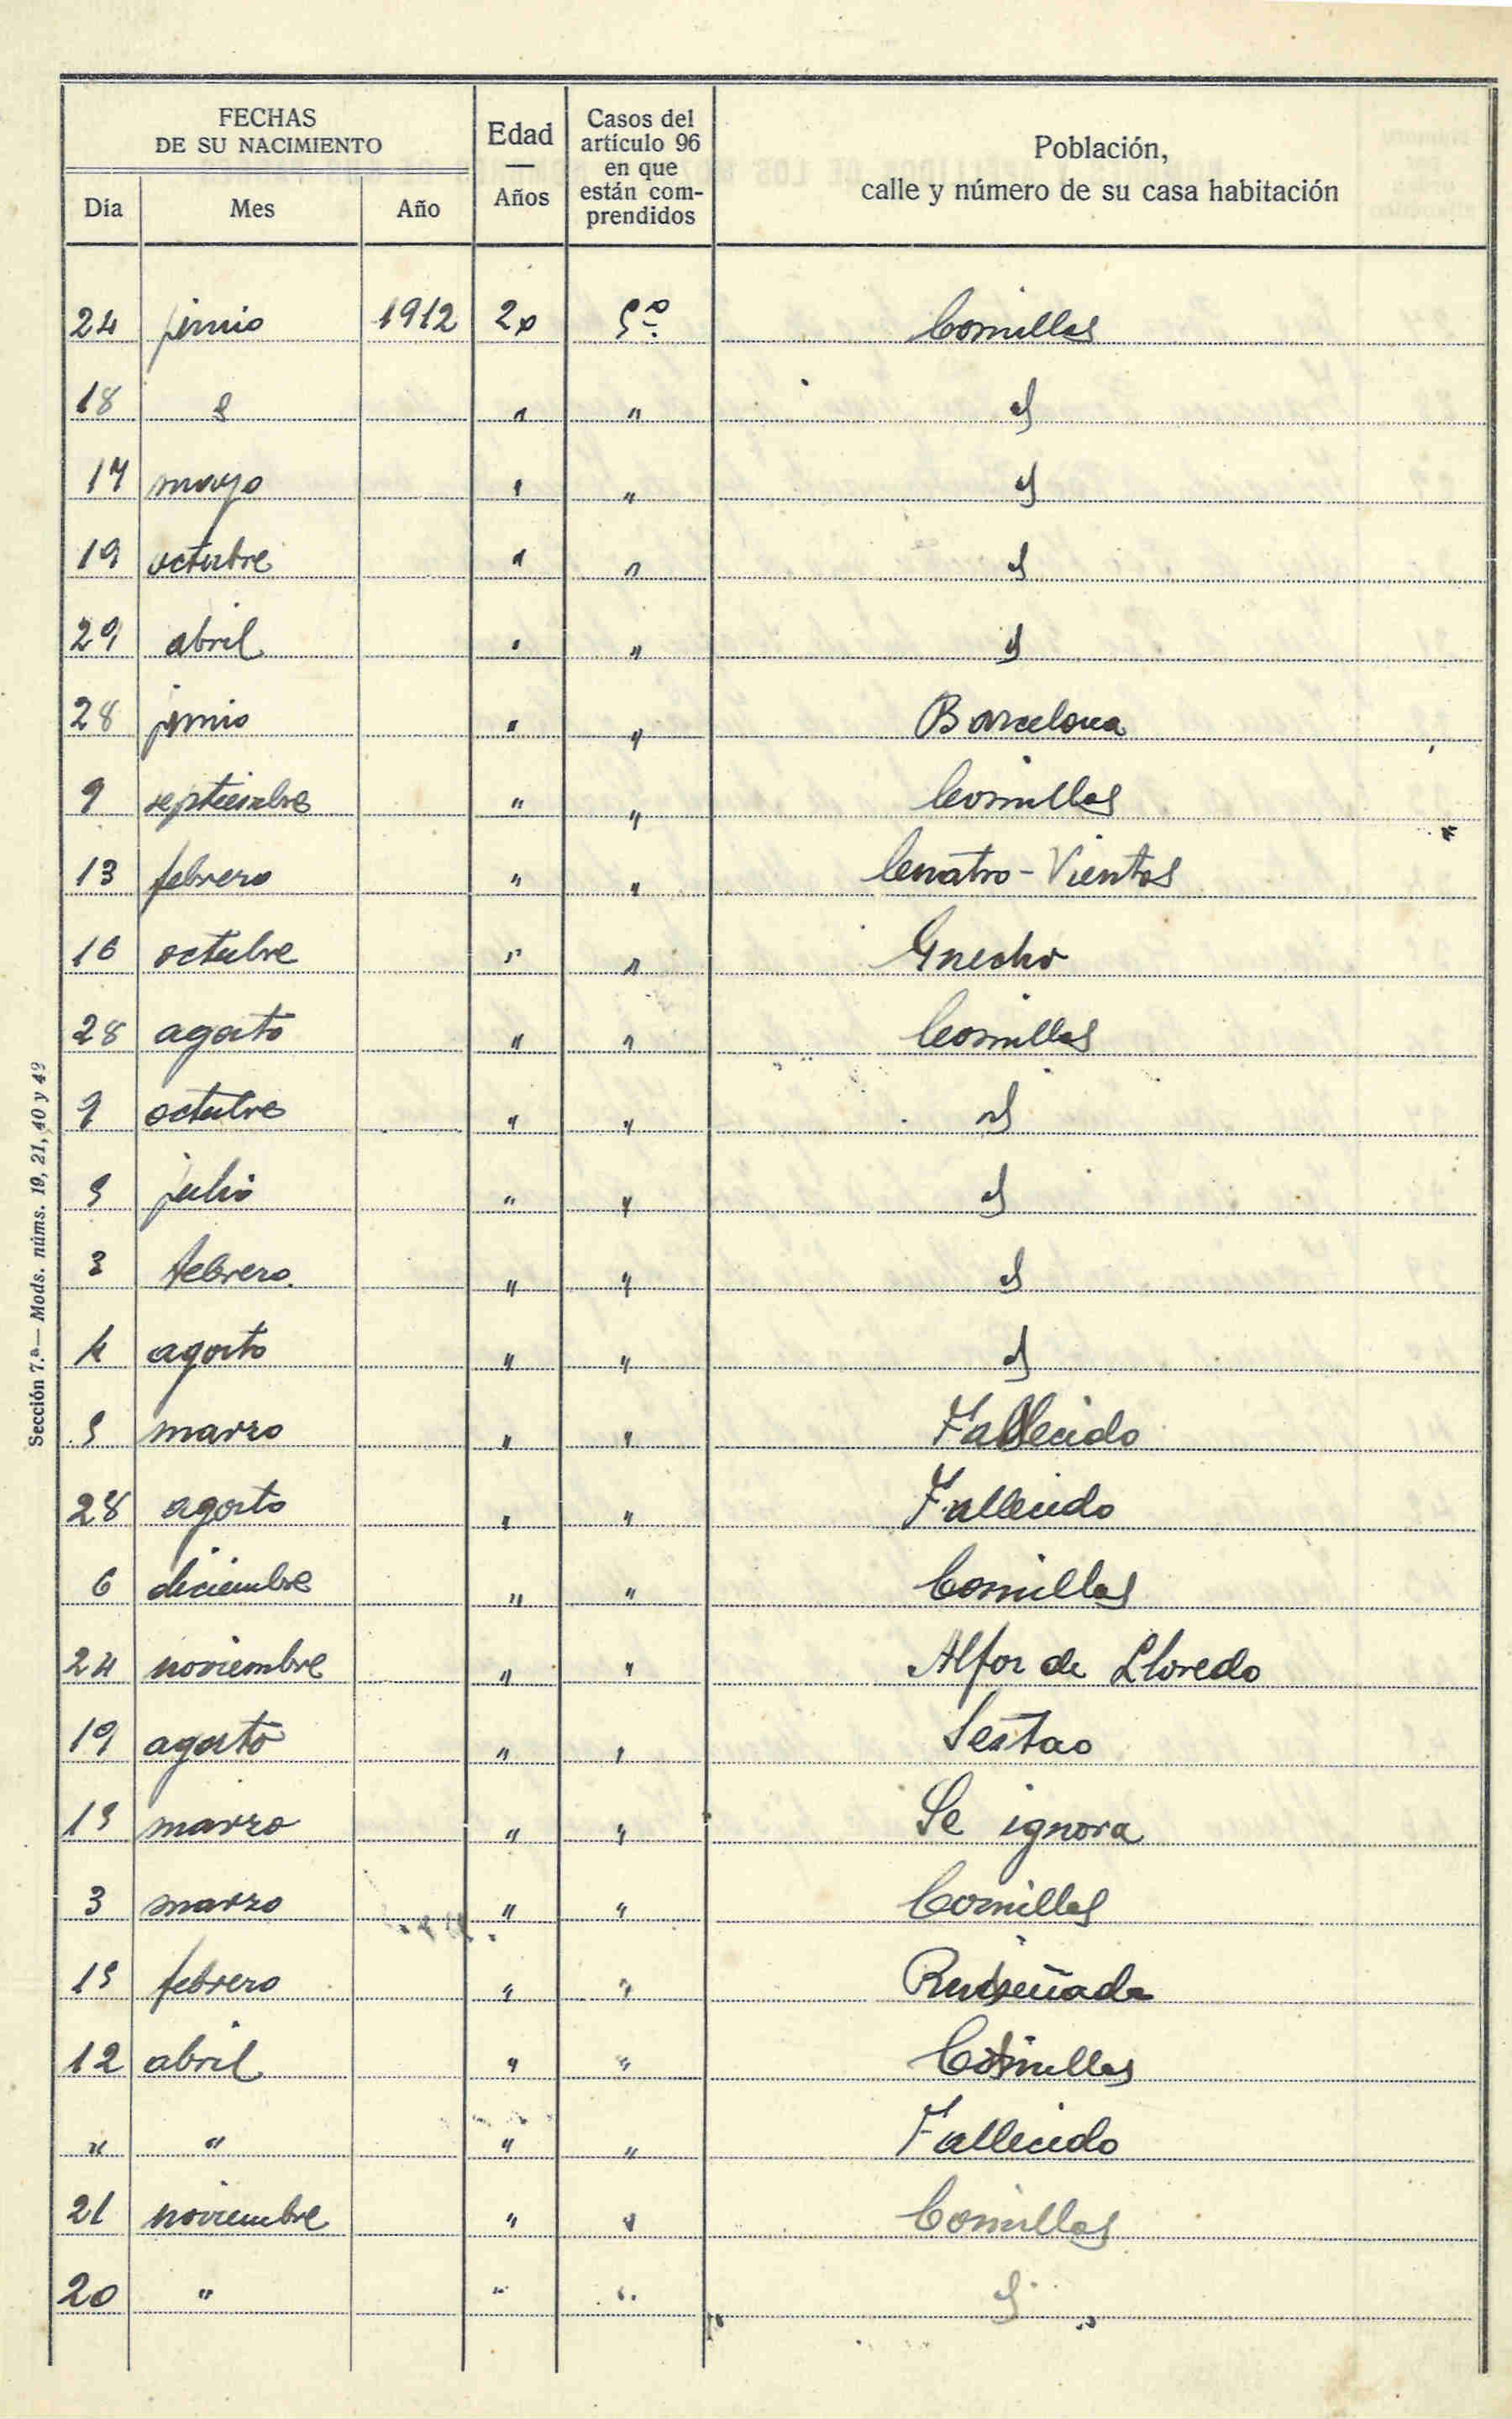 FECHAS DE SU NACIMIENTO
Día Mes Año
Edad — Años
Casos del artículo 96 en que están comprendidos
Población, calle y número de su casa habitación
24 junio 1912 20 5º Comillas
18 id " " id
17 mayo " " id
19 octubre " " id
29 abril " " id
28 junio " " Barcelona
9 septiembre " " Comillas
13 febrero " " Cuatro-Vientos
16 octubre " " Guecho
28 agosto " " Comillas
9 octubre " " id
5 julio " " id
3 febrero " " id
4 agosto " " id
5 marzo " " Fallecido
28 agosto " " Fallecido
6 diciembre " " Comillas
24 noviembre " " Alfoz de Lloredo
19 agosto " " Sestao
15 marzo " " Se ignora
3 marzo " " Comillas
15 febrero " " Ruiseñada
12 abril " " Comillas
" " " " Fallecido
21 noviembre " " Comillas
20 " " " id
Sección 7.ª— Mods. núms. 19, 21, 40 y 49